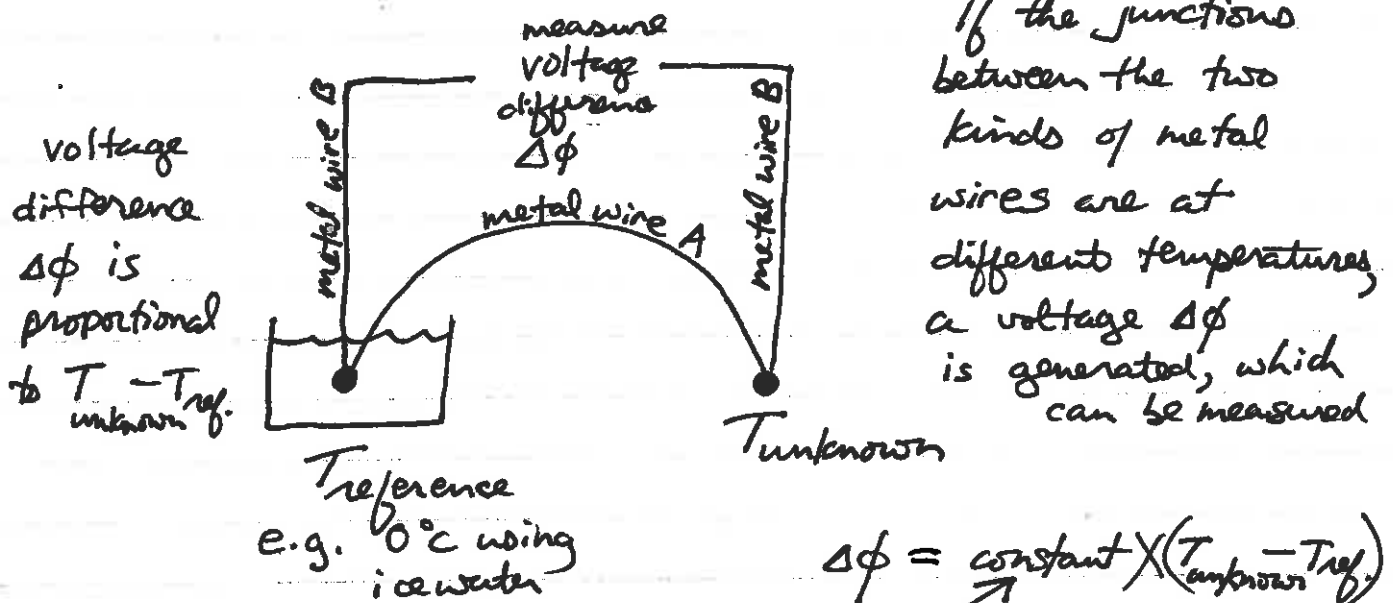 voltage
difference
Δϕ is
proportional
to T unknown - T ref.
measure
voltage
difference
Δϕ
metal wire B
metal wire A
metal wire B
T reference
e.g. 0°C using
ice water
T unknown
If the junctions
between the two
kinds of metal
wires are at
different temperatures,
a voltage Δϕ
is generated, which
can be measured
Δϕ = constant X (T unknown - T ref.)